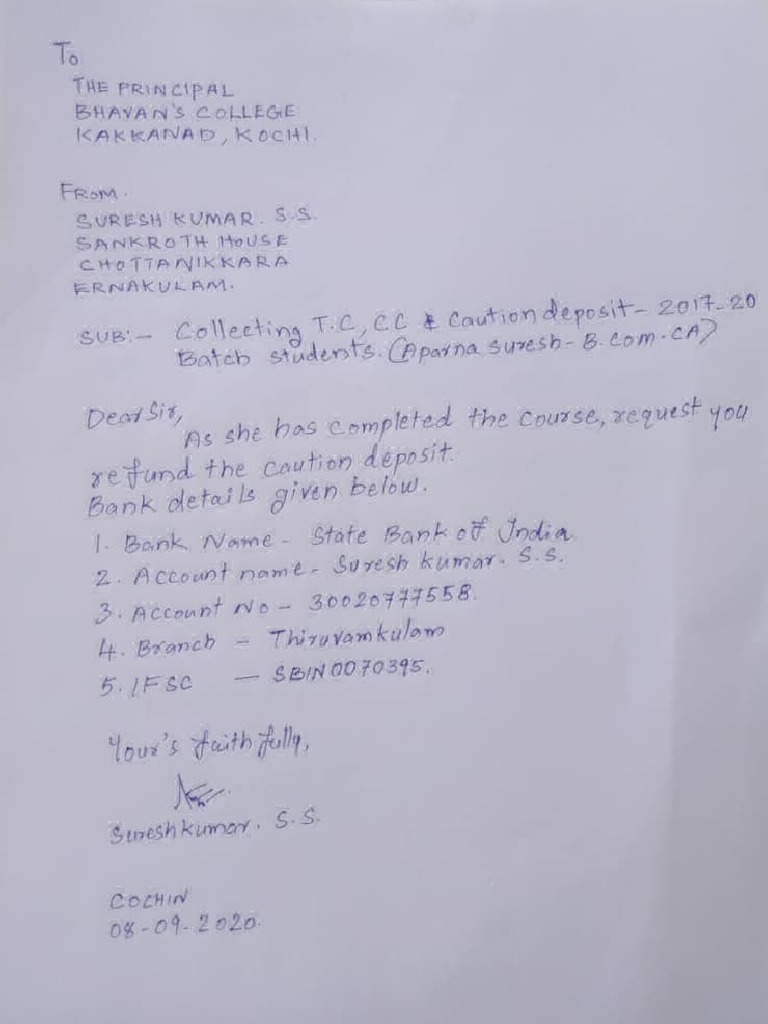 To
THE PRINCIPAL
BHAVAN'S COLLEGE
KAKKANAD, KOCHI.
FROM.
SURESH KUMAR. S.S.
SANKROTH HOUSE
CHOTTANIKKARA
ERNAKULAM.
SUB:- Collecting T.C, CC & Caution deposit - 2017-20
Batch students. (Aparna Suresh - B.Com-CA)
Dear Sir,
As she has completed the course, request you
refund the caution deposit.
Bank details given below.
1. Bank Name - State Bank of India
2. Account name - Suresh kumar. S.S.
3. Account No - 30020777558.
4. Branch - Thiruvamkulam
5. IFSC - SBIN0070395.
Your's faithfully,
Sureshkumar. S.S.
COCHIN
08-09-2020.